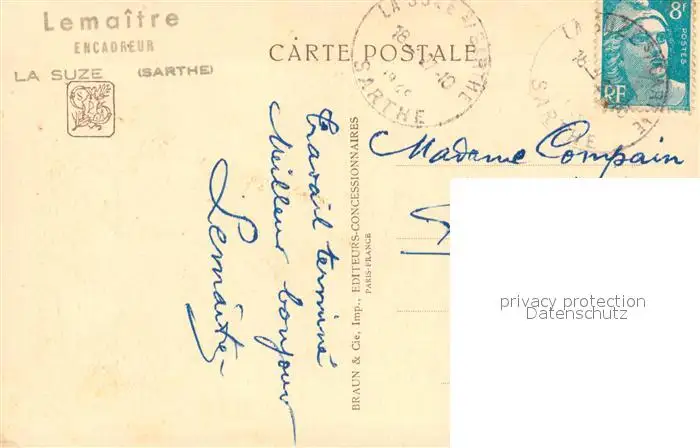 Lemaître
ENCADREUR
LA SUZE (SARTHE)
CARTE POSTALE
SARTHE
8f
POSTES
RF
SARTHE
travail terminé
Meilleur bonjour
Lemaître
BRAUN & Cie, Imp., EDITEURS-CONCESSIONNAIRES
PARIS-FRANCE
Madame Compain
privacy protection
Datenschutz